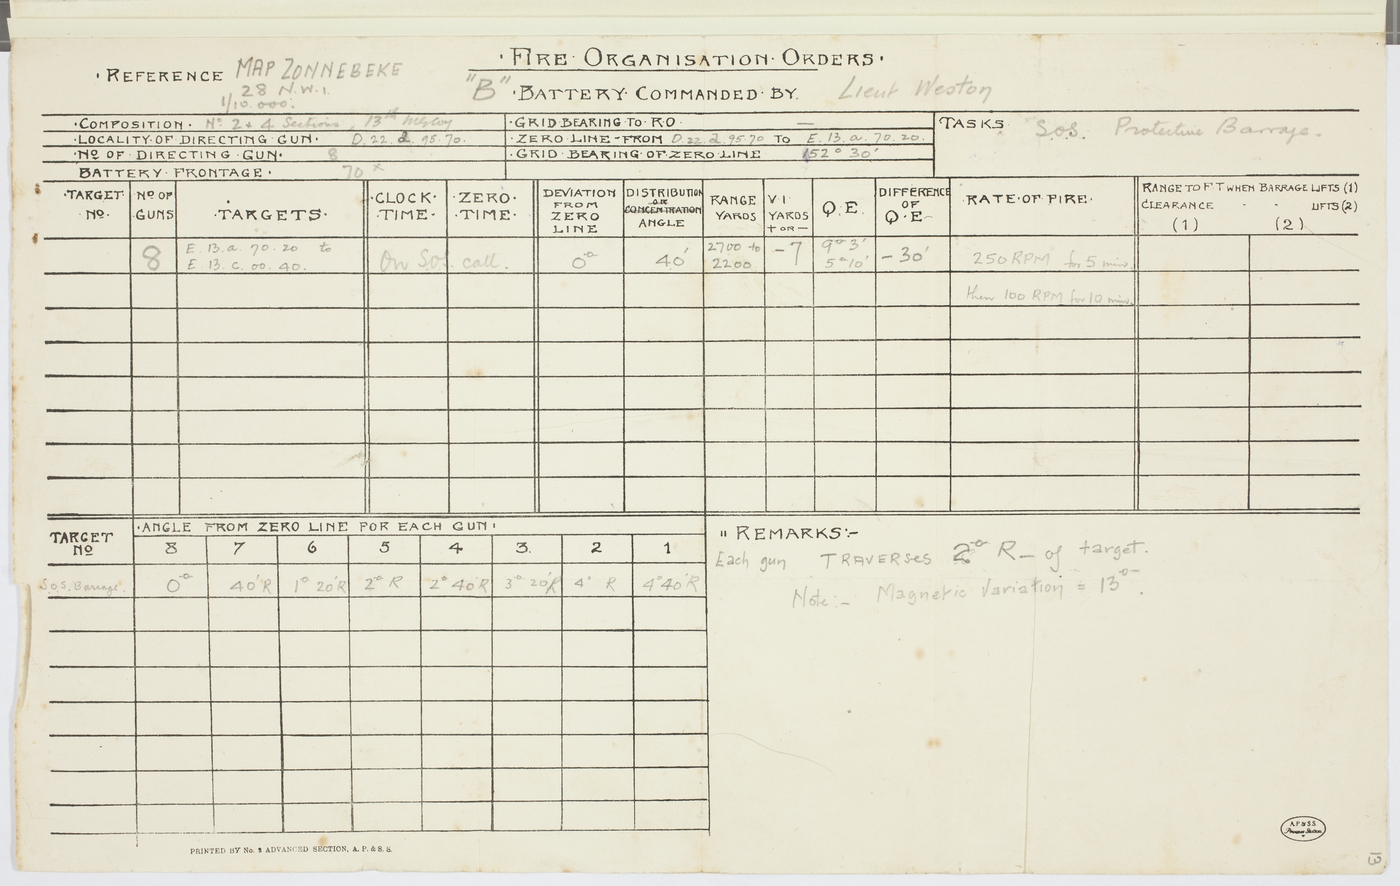 · FIRE · ORGANISATION · ORDERS ·
· REFERENCE MAP ZONNEBEKE
28 N.W.1.
1/10.000.
"B" · BATTERY · COMMANDED · BY. Lieut Weston
· COMPOSITION · No. 2 & 4 Sections, 13th
· LOCALITY · OF · DIRECTING · GUN · D.22.d.95.70.
· No OF · DIRECTING · GUN · 8
BATTERY · FRONTAGE · 70 x
· GRID BEARING TO · R.O. —
· ZERO · LINE - FROM D.22.d.95.70 TO E.13.a.70.20.
· GRID · BEARING · OF · ZERO LINE 152° 30'
TASKS. S.O.S. Protective Barrage.
· TARGET · No. No OF GUNS · TARGETS · · CLOCK · · TIME · · ZERO · · TIME · DEVIATION FROM ZERO LINE DISTRIBUTION OR CONCENTRATION ANGLE RANGE YARDS V.I. YARDS + OR — Q.E. DIFFERENCE OF Q.E. · RATE · OF · FIRE · RANGE TO F.T WHEN BARRAGE LIFTS (1)
CLEARANCE " " LIFTS (2)
(1) (2)
8 E.13.a.70.20 to E.13.c.00.40. On SoS. call. 0° 40' 2700 to 2200 -7 9° 3' 5° 10' -30' 250 RPM for 5 mins.
then 100 RPM for 10 mins.
TARGET No
· ANGLE FROM ZERO LINE FOR EACH GUN ·
8 7 6 5 4 3. 2 1
S.O.S. Barrage. 0° 40'R 1° 20'R 2° R 2° 40'R 3° 20'R 4° R 4° 40'R
" REMARKS:-
Each gun TRAVERSES 2° R— of target.
Note:- Magnetic Variation = 13°.
PRINTED BY No. 2 ADVANCED SECTION, A. P. & S. S.
A.P.&S.S.
13